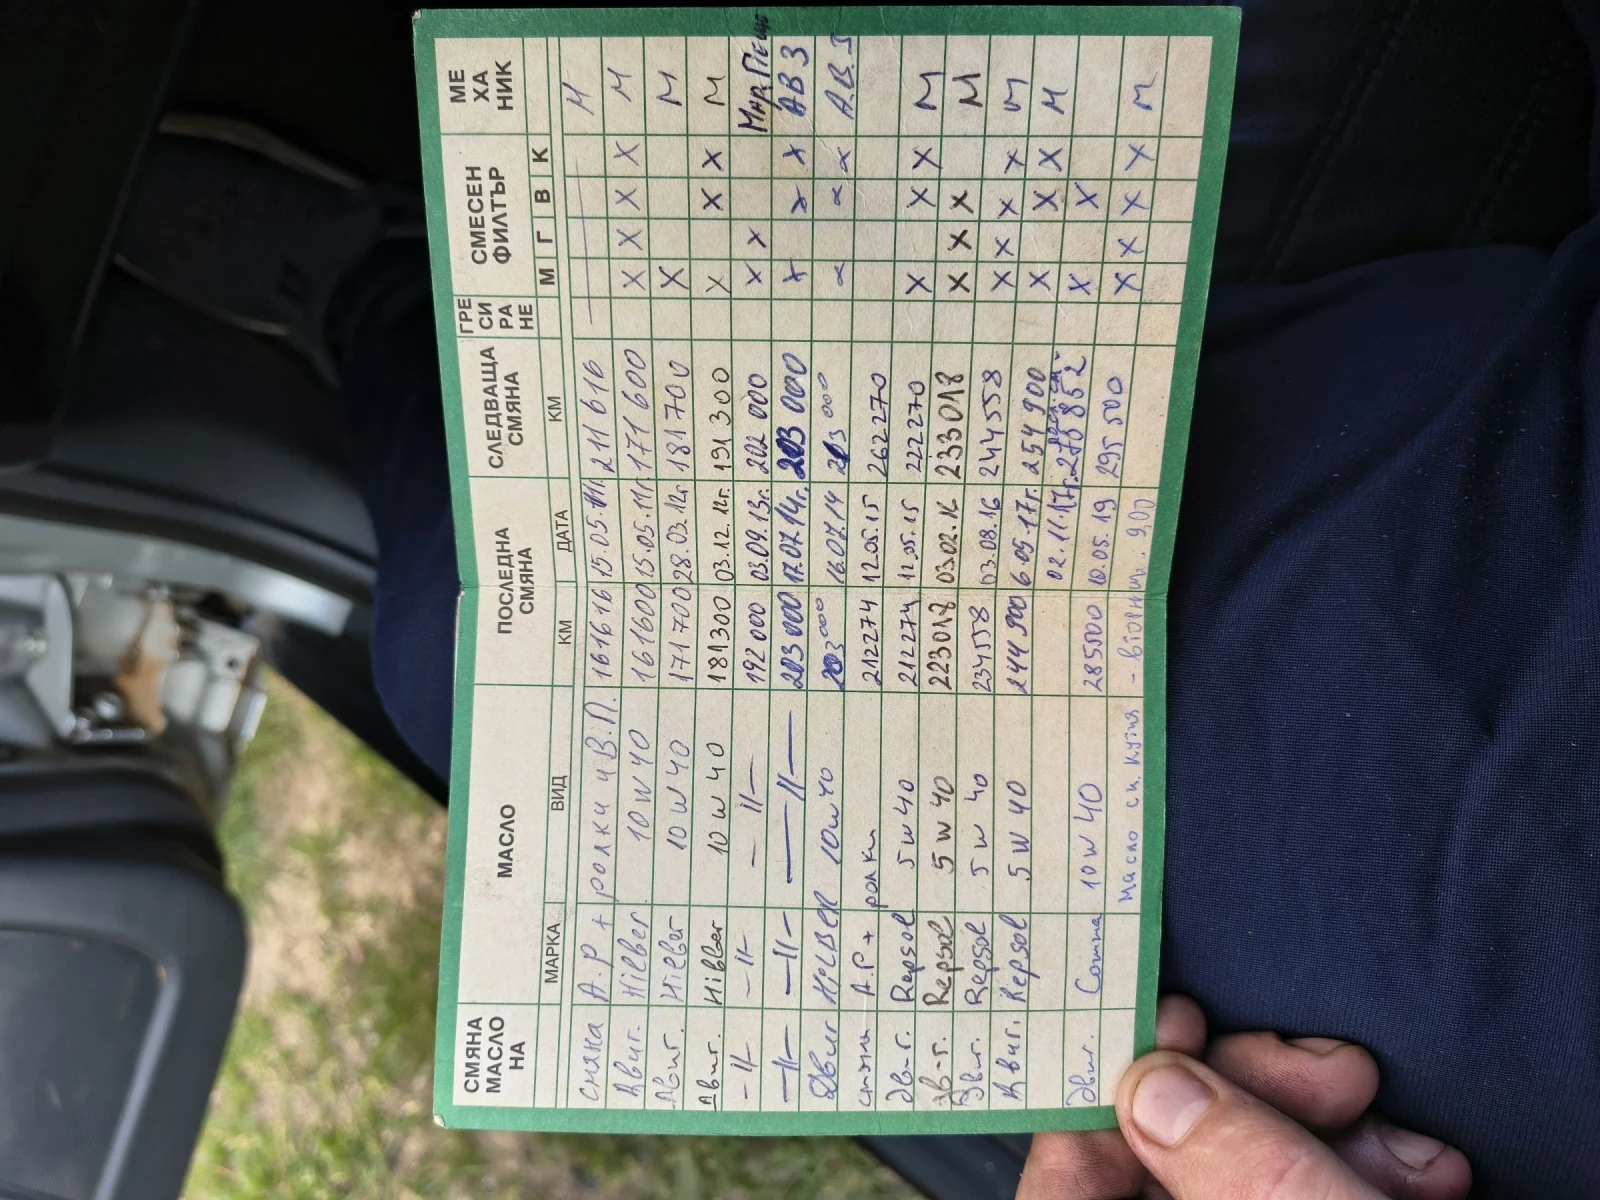 СМЯНА МАСЛО НА МАСЛО ПОСЛЕДНА СМЯНА СЛЕДВАЩА СМЯНА ГРЕ СИ РА НЕ СМЕСЕН ФИЛТЪР МЕ ХА НИК
МАРКА ВИД КМ ДАТА КМ М Г В К
смяна А.Р + ролки и В.П. 161616 15.05.11г. 211616 М
Двиг. Hilber 10W40 161600 15.05.11г. 171600 X X X X М
Двиг. Hilber 10W40 171700 28.03.12г 181700 X М
Двиг. Hibber 10W40 181300 03.12.12г. 191300 X X X М
-//- -//- -//- 192000 03.09.13г. 202000 X X
-//- -//- -//- 203000 17.07.14г. 203000 x x x АВЗ
HILBER 10W40 203000 16.07.14 213000 x x x А.В.З
смяна А.Р + ролки 212274 12.05.15 262270
Дв-г. Repsol 5W40 212274 12.05.15 222270 X X X М
Дв-г. Repsol 5W40 223018 03.02.16 233018 X X X М
Двиг. Repsol 5W40 234558 03.08.16 244558 X X X X М
Двиг. Repsol 5W40 244900 6.05.17г. 254900 X X X М
02.11.17г. 278852 X X
Двиг. Comma 10W40 285500 10.05.19 295500 X X X X М
Масло ск. кутия - 9,00